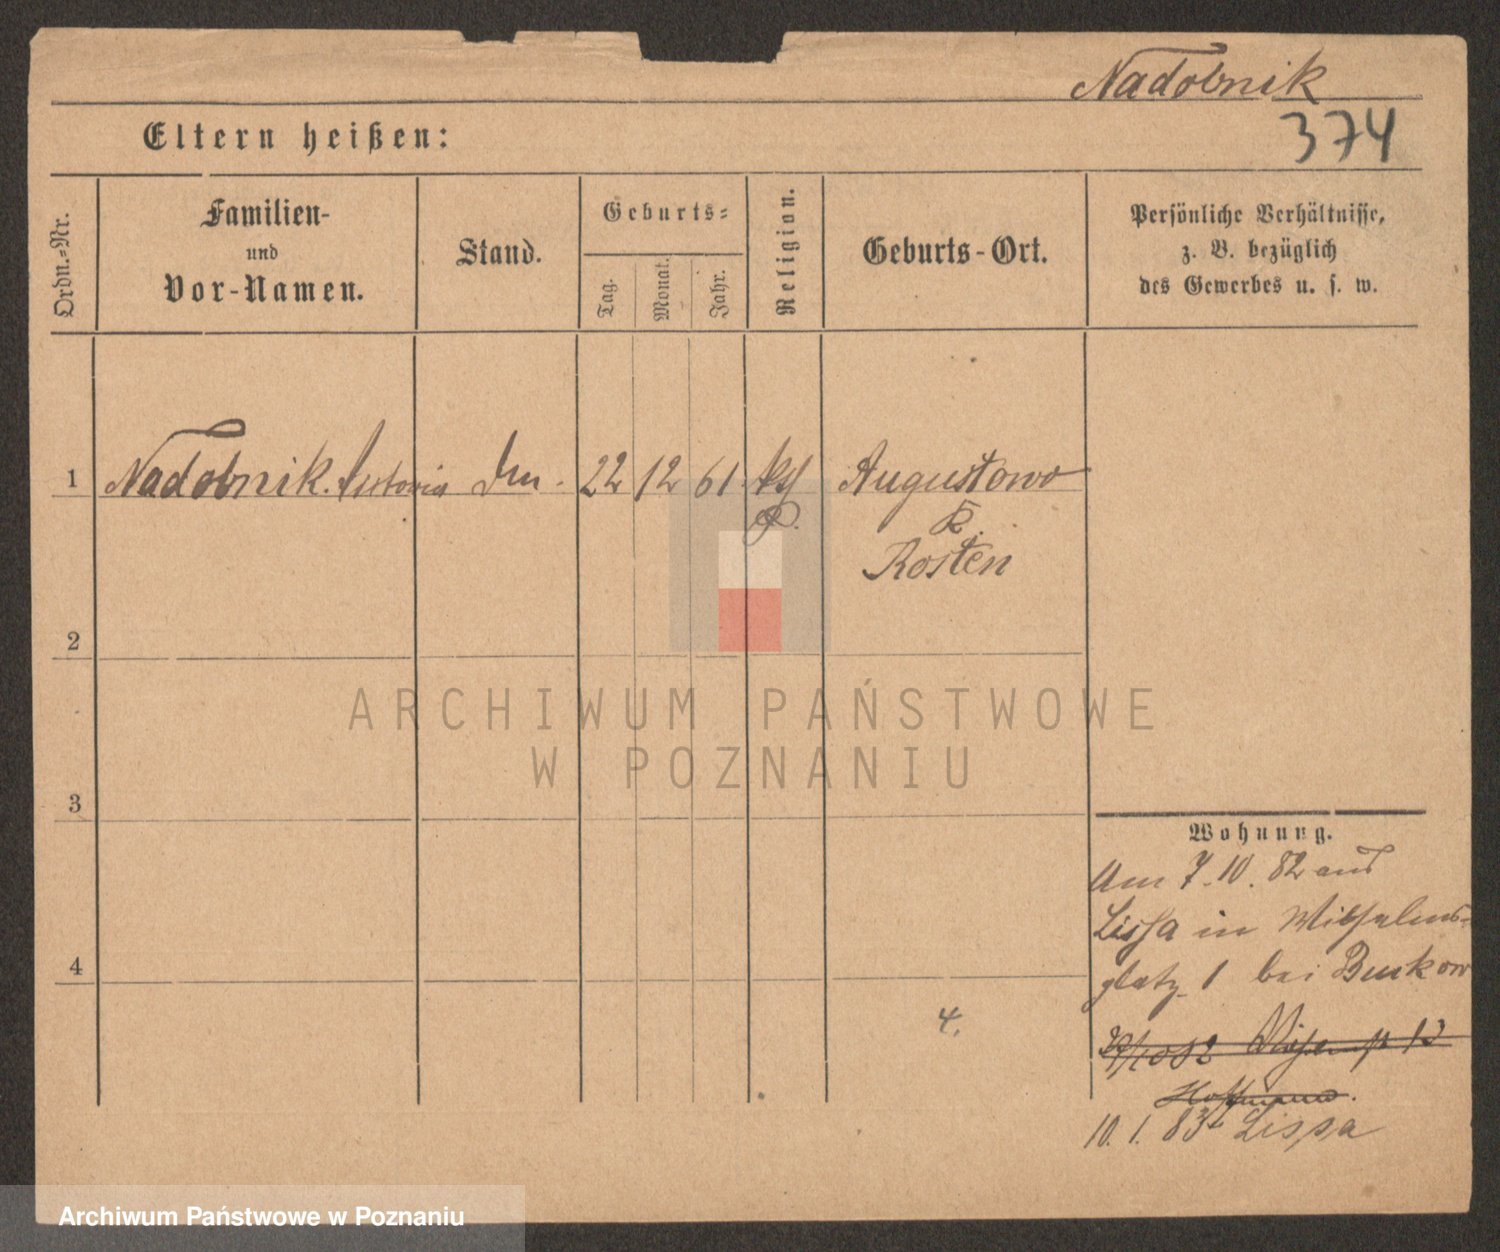 Nadobnik
374
Eltern heißen:
Ordn.=Nr.
Familien-
und
Vor-Namen.
Stand.
Geburts=
Tag.
Monat.
Jahr.
Religion.
Geburts-Ort.
Persönliche Verhältnisse,
z. B. bezüglich
des Gewerbes u. s. w.
1 Nadobnik. 22 12 61 Augustowo
P.
K.
Kosten
2
3
4
ARCHIWUM PAŃSTWOWE
W POZNANIU
Wohnung.
Am 7.10.82 aus
Lissa in Wilhelms-
platz 1 bei
4.
Hoffmann.
10.1.83 Lissa
Archiwum Państwowe w Poznaniu